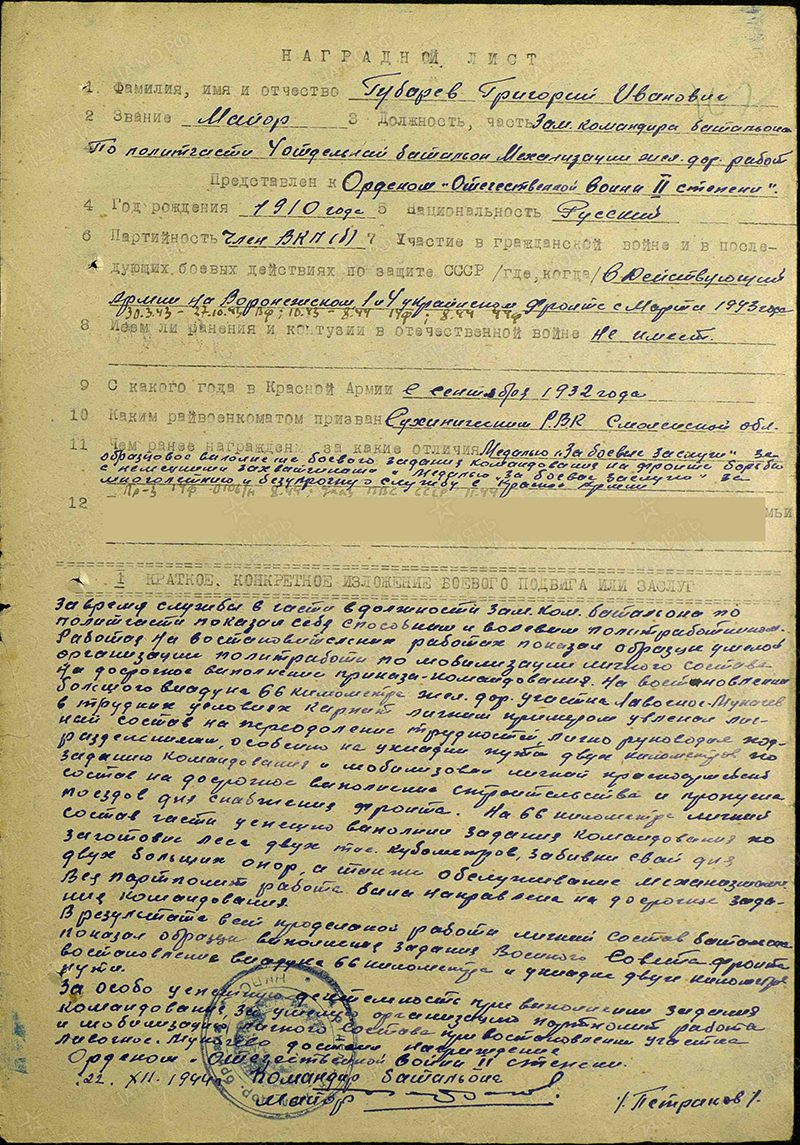 НАГРАДНОЙ ЛИСТ
1. Фамилия, имя и отчество Губарев Григорий Иванович
2 Звание Майор 3 Должность, часть Зам. командира батальона
По политчасти 4 отдельный батальон Механизации жел. дор. работ
Представлен к Орденом "Отечественной Войны II степени".
4 Год рождения 1910 года 5 Национальность Русский
6 Партийность Член ВКП(б) 7 Участие в гражданской войне и в после-
дующих боевых действиях по защите СССР /где, когда/ В Действующий
Армии на Воронежском 1 и 4 украинском Фронте с Марта 1943 года
30.3.43 - 27.10.43 ВФ; 10.43 - 8.44 1УФ; 8.44 4УФ
8 Имеем ли ранения и контузии в отечественной войне Не имеет.
9 С какого года в Красной Армии С сентября 1932 года
10 Каким райвоенкоматом призван Сухиническим РВК Смоленской обл.
11 Чем ранее награжден за какие отличия Медалью "За боевые заслуги" за
образцовое выполнение боевого задания командования на фронте борьбы
с немецкими захватчиками и Медалью "за боевые заслуги" за
многолетнюю и безупречную службу в Красной Армии
Пр-з 1УФ 0106/н 8.44; Указ ПВС СССР 11.44
12
мьи
1 КРАТКОЕ, КОНКРЕТНОЕ ИЗЛОЖЕНИЕ БОЕВОГО ПОДВИГА ИЛИ ЗАСЛУГ
За время службы в части в должности Зам. Ком. батальона по
политчасти показал себя способным и волевым политработником.
Работая На востановительных работах показал образцы умелой
организации политработы по мобилизации личного состава
На досрочное выполнение приказа-командования. На востановлении
большого виадука 66 километре жел. дор. участка Лавочное-Мукачев
в трудных условиях Карпат личным примером увлекал лич-
ный состав на переодоление трудностей лично руководил под-
разделениями, особенно на укладки пути двух километров по
заданию Командования и мобилизовал личный красноармейский
состав на досрочное выполнение строительства и пропуска
поездов для снабжения фронта. На 66 километре личный
состав части успешно выполнил задания командования по
заготовке леса двух тыс. кубометров, забивки свай для
двух больших опор, а также обслуживание механизмами
Вся партполит работа была направлена на досрочное зада-
ние командования.
В результате всей проделаной работы личный состав батальона
показал образцы выполнения задания Военного Совета фронта
востановление виадука 66 километра и укладке двух километров
пути.
За особо успешную деятельность при выполнении задания
командования, за умелую организацию партполит работы
и мобилизацию личного состава при востановлении участка
Лавочное-Мукачево достоин награждение
Орденом "Отечественной Войны II степени.
22. XII. 1944г. Командир батальона
Майор /Петраков/.